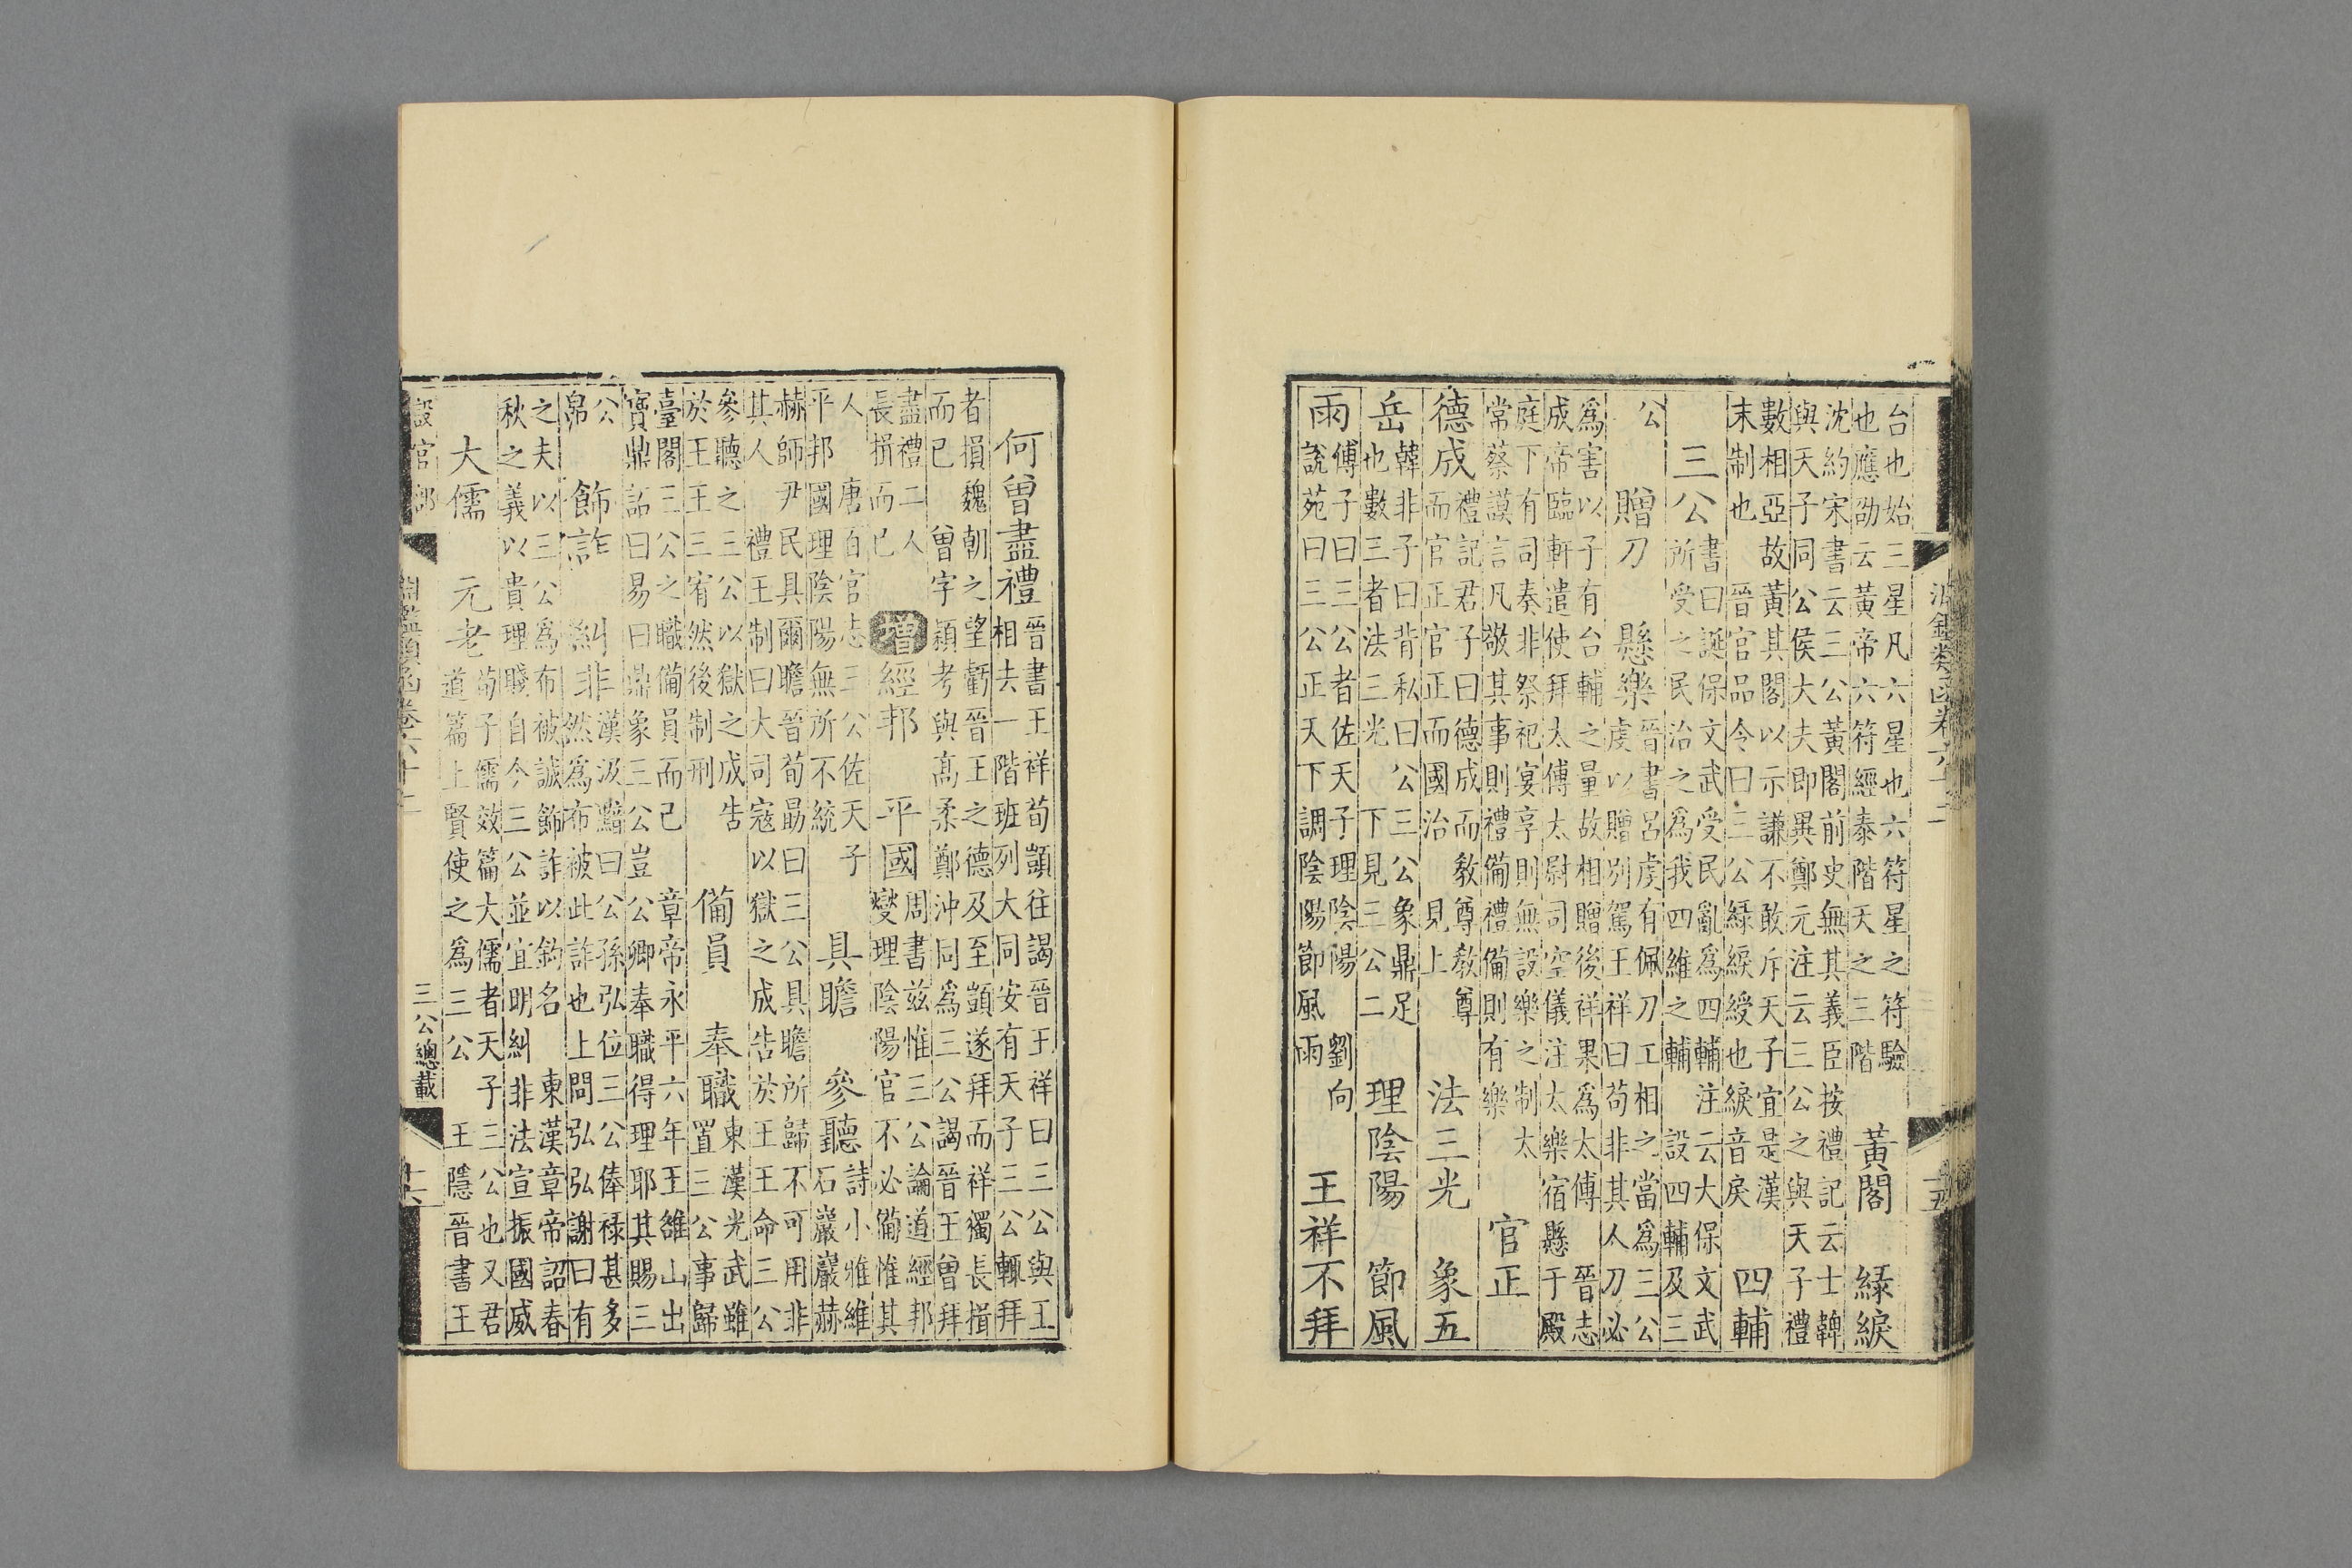 淵鑑類函卷六十二 十五
台也始三星凡六星也六符星之符驗
也應劭云黃帝六符經泰階天之三階
黃閣 綠綟
沈約宋書云三公黃閣前史無其義臣按禮記云士韠
與天子同公侯大夫即異鄭元注云三公之與天子禮
數相亞故黃其閣以示謙不敢斥天子宜是漢
末制也 晉官品令曰三公綠綟綬也綟音戾
四輔
三公
書曰誕保文武受民亂爲四輔注云大保文武
所受之民治之爲我四維之輔 設四輔及三
公
贈刀 懸樂
晉書呂虔有佩刀工相之當爲三公
虔以贈別駕王祥曰苟非其人刀必
爲害以子有台輔之量故相贈後祥果爲太傅 晉志
成帝臨軒遣使拜太傅太尉司空儀注太樂宿懸于殿
庭下有司奏非祭祀宴享則無設樂之制 太
常蔡謨言凡敬其事則禮備禮備則有樂
官正
德成
禮記君子曰德成而敎尊敎尊
而官正官正而國治 見上
法三光 象五
岳
韓非子曰背私曰公三公象鼎足
也數三者法三光 下見三公二
理陰陽 節風
雨
傅子曰三公者佐天子理陰陽 劉向
說苑曰三公正天下調陰陽節風雨
王祥不拜
何曾盡禮
晉書王祥荀顗往謁晉王祥曰三公與王
相去一階班列大同安有天子三公輒拜
者損魏朝之望虧晉王之德及至顗遂拜而祥獨長揖
而已 曾字潁考與高柔鄭沖同爲三公謁晉王曾拜
盡禮二人
長揖而已
增 經邦 平國
周書茲惟三公論道經邦
燮理陰陽官不必備惟其
人 唐百官志三公佐天子
平邦國理陰陽無所不統
具瞻 參聽
詩小雅維
石巖巖赫
赫師尹民具爾瞻晉荀勗曰三公具瞻所歸不可用非
其人 禮王制曰大司寇以獄之成告於王王命三公
參聽之三公以獄之成告
於王王三宥然後制刑
備員 奉職
東漢光武雖
置三公事歸
臺閣三公之職備員而已 章帝永平六年王雒山出
寶鼎詔曰易曰鼎象三公豈公卿奉職得理耶其賜三
公
帛
飾詐 糾非
漢汲黯曰公孫弘位三公俸祿甚多
然爲布被此詐也上問弘弘謝曰有
之夫以三公爲布被誠飾詐以釣名 東漢章帝詔春
秋之義以貴理賤自今三公並宜明糾非法宣振國威
大儒 元老
荀子儒效篇大儒者天子三公也又君
道篇上賢使之爲三公 王隱晉書王
設官部 淵鑑類函卷六十二 三公總載 十六